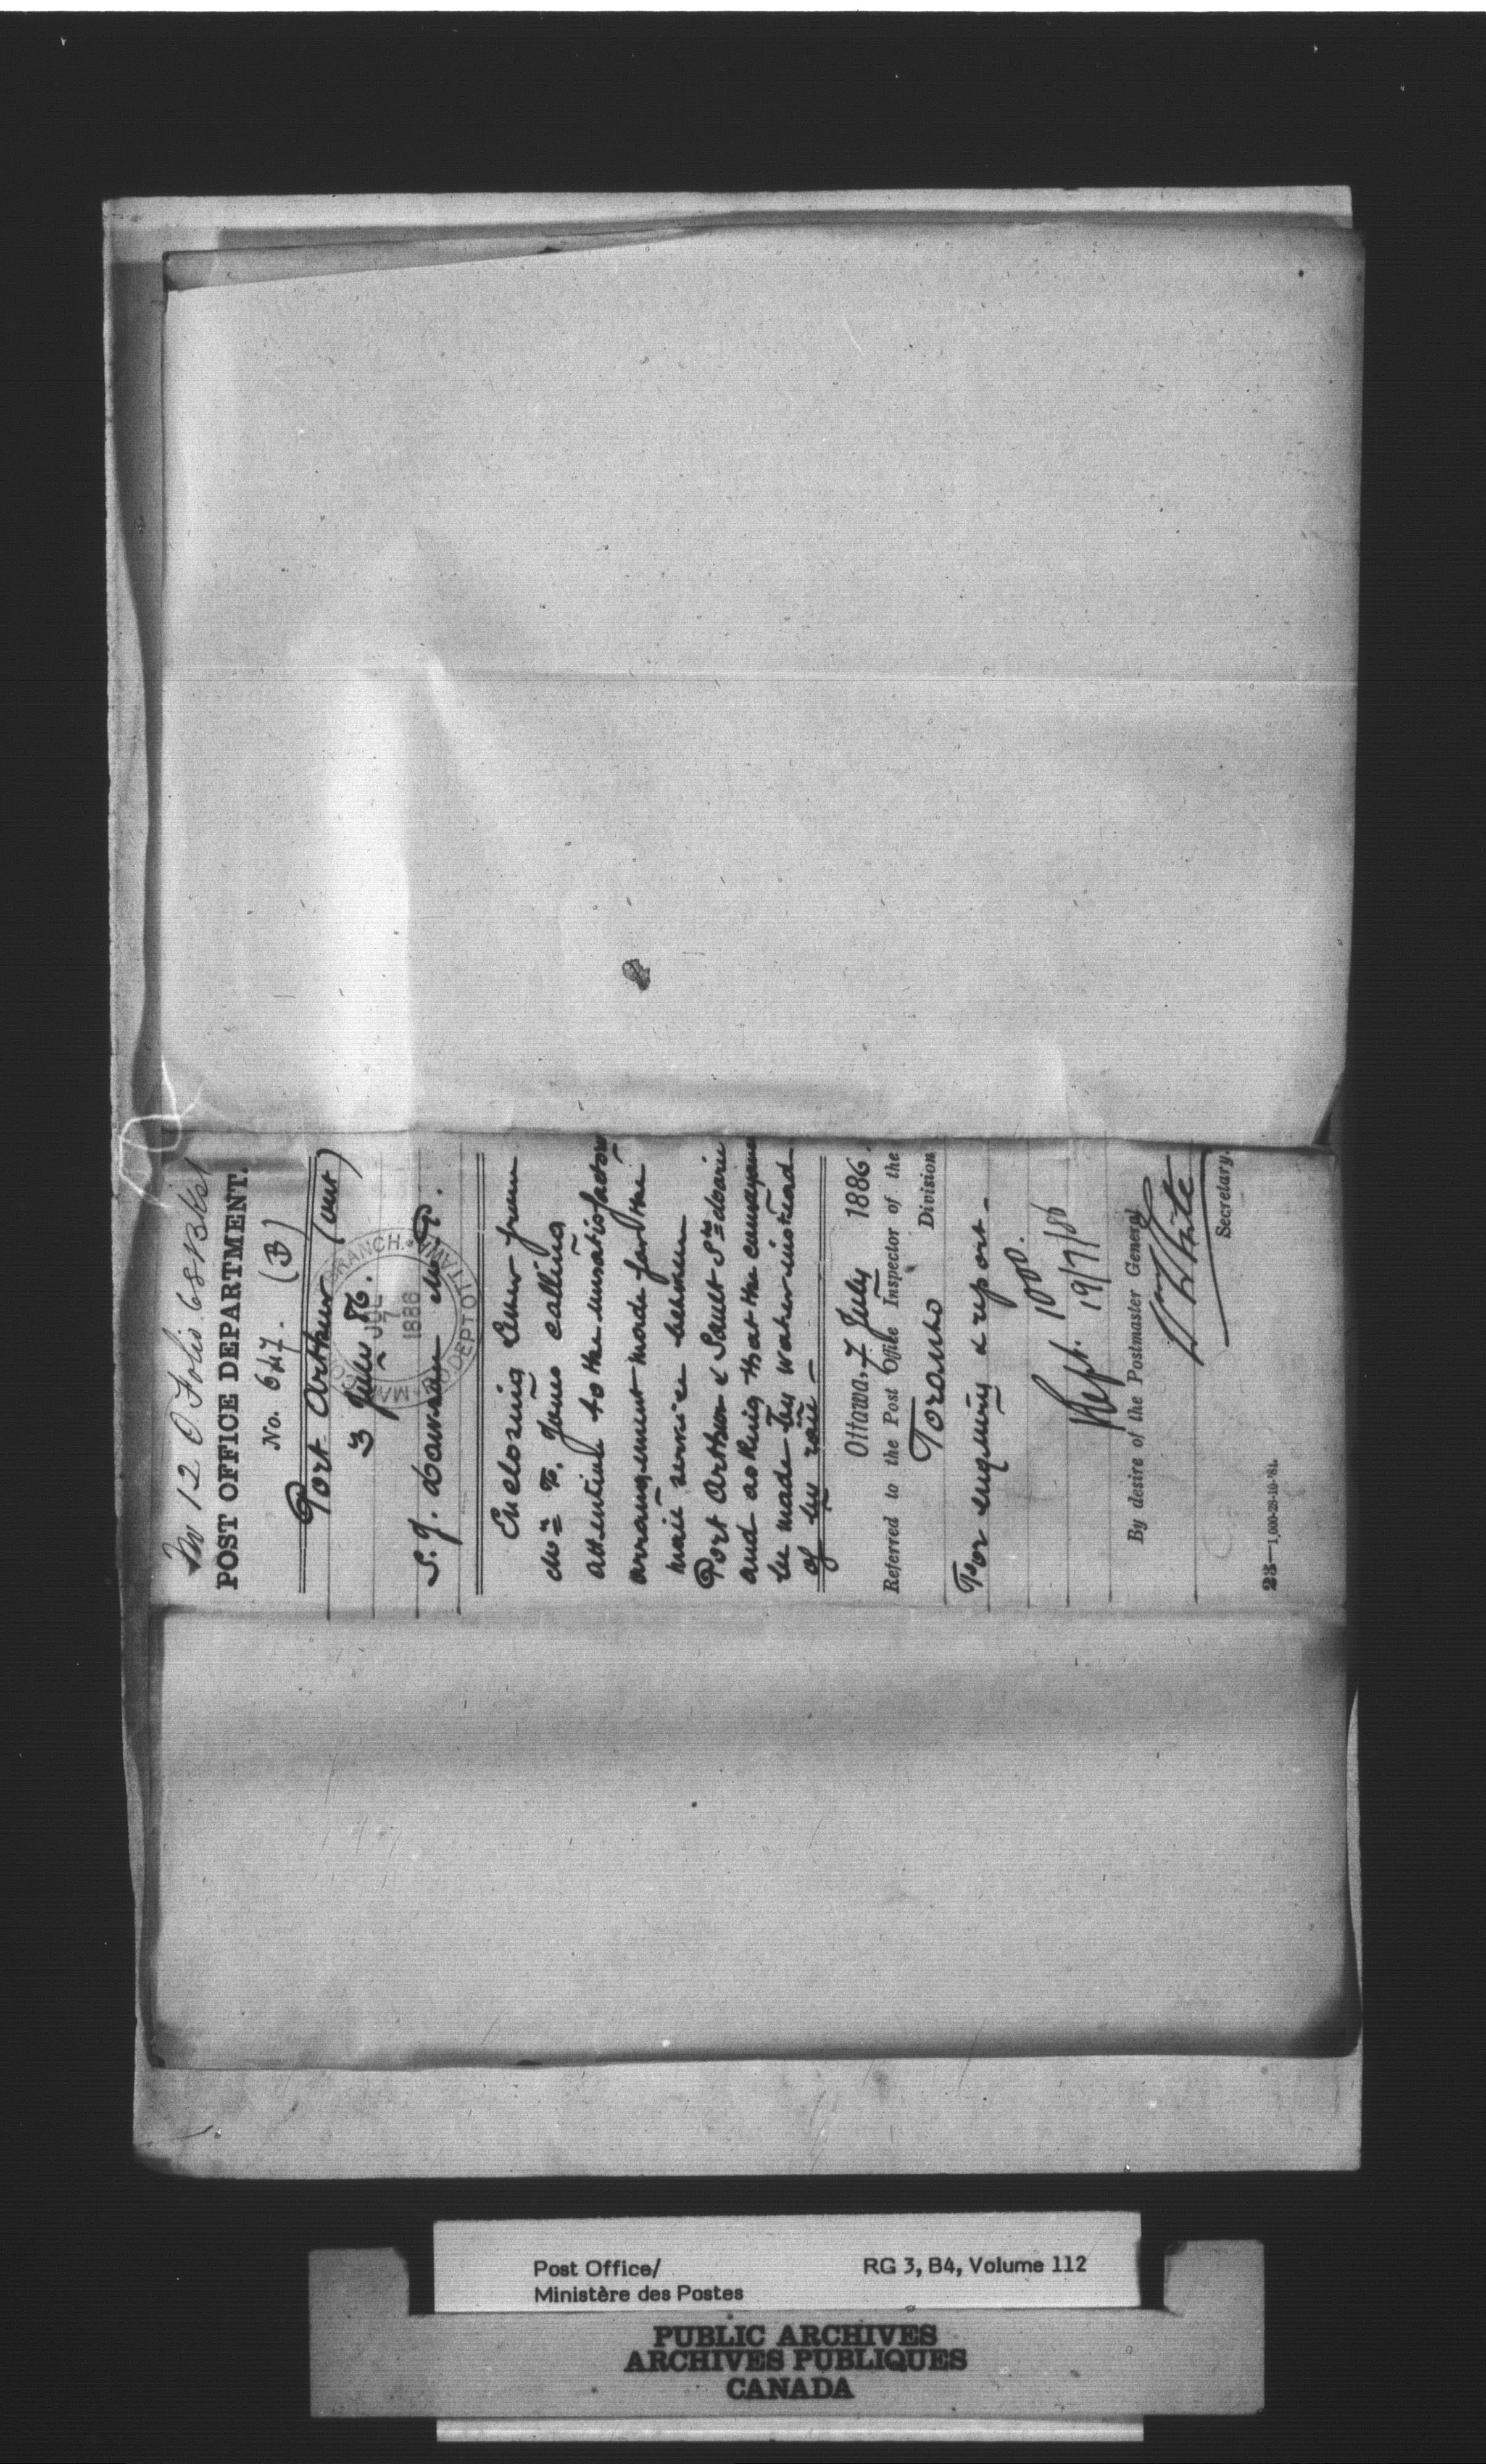 M 12 O Folio 68 Bks1
POST OFFICE DEPARTMENT.
No. 647. (B)
Port Arthur (Ont)
3 July 86.
S. J. Dawson M.P.
MAIL BRANCH.
JUL
7
1886
P.O. DEPT OTTAWA
Enclosing letter from
T. Jones calling
attention to the unsatisfactory
arrangement made for the
mail service between
Port Arthur & Sault Ste Marie
and asking that the conveyance
be made by water instead
of by rail -
Ottawa, 7 July 1886.
Referred to the Post Office Inspector of the
Toronto Division
For enquiry & report -
Rept. 1000.
19/7/86
By desire of the Postmaster General
W White
Secretary.
23—1,000-28-10-'81.
Post Office/
Ministère des Postes
RG 3, B4, Volume 112
PUBLIC ARCHIVES
ARCHIVES PUBLIQUES
CANADA